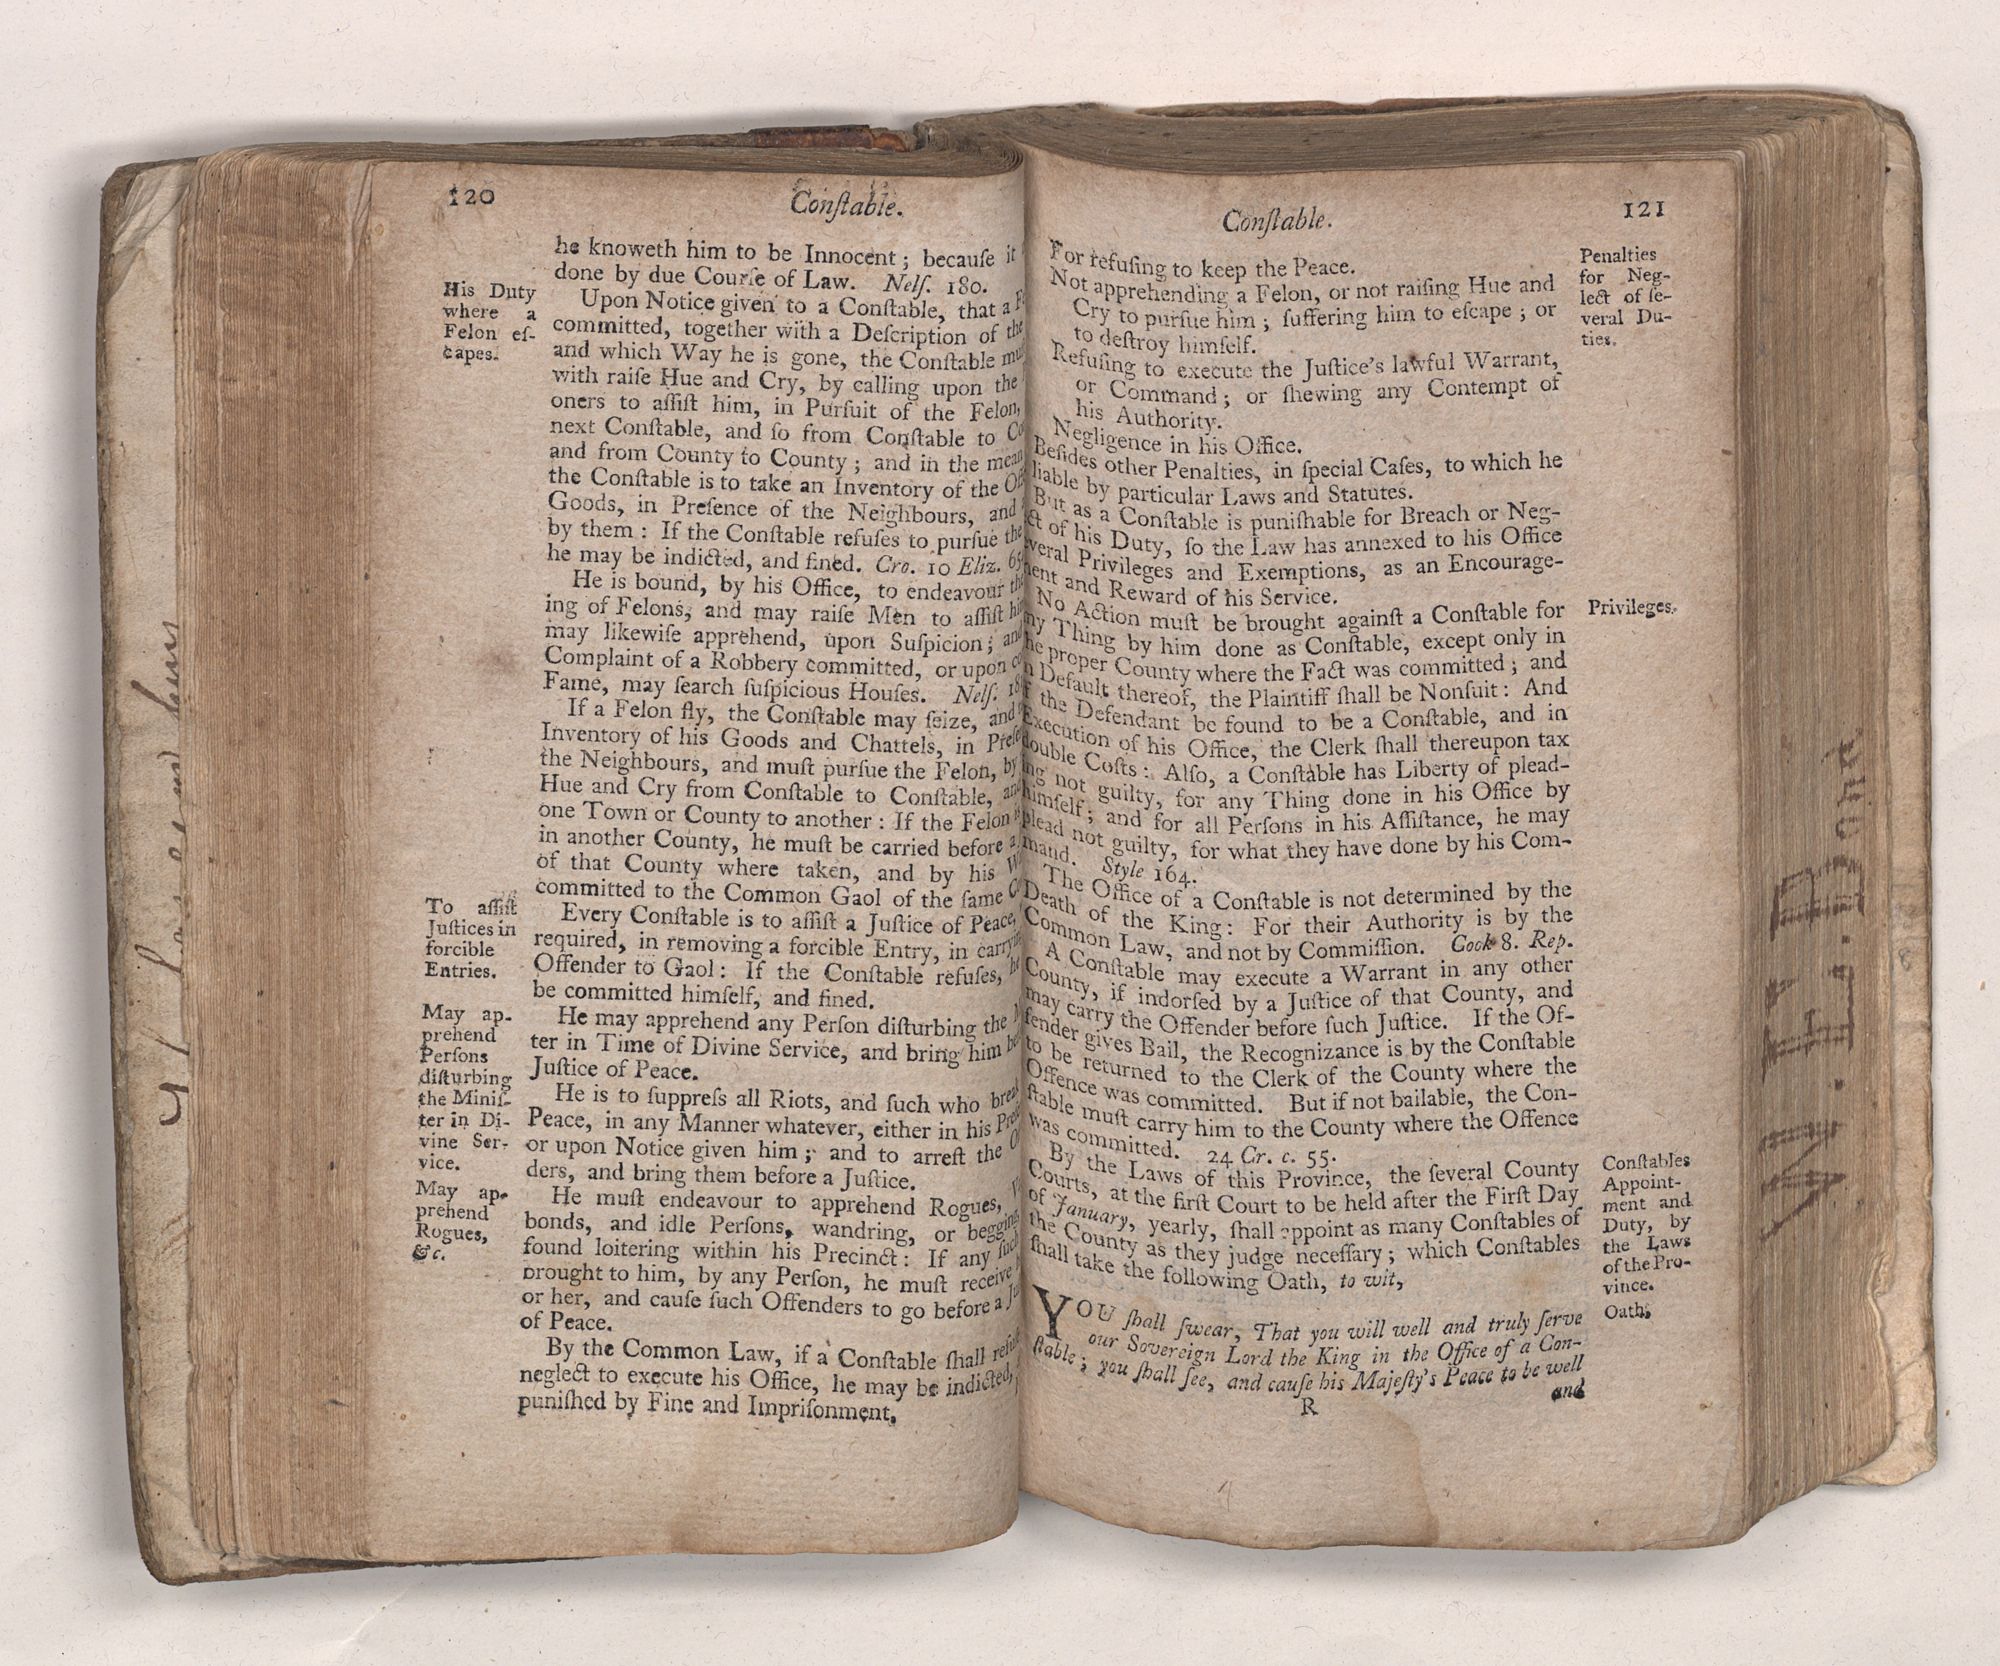 120
Conſtable.
he knoweth him to be Innocent; becauſe it
done by due Courſe of Law. Nelſ. 180.
His Duty
where a
Felon eſ-
capes.
Upon Notice given to a Conſtable, that a
committed, together with a Deſcription of the
and which Way he is gone, the Conſtable
with raiſe Hue and Cry, by calling upon the
oners to aſſiſt him, in Purſuit of the Felon,
next Conſtable, and ſo from Conſtable to
and from County to County; and in the mean
the Conſtable is to take an Inventory of the
Goods, in Preſence of the Neighbours, and
by them: If the Conſtable refuſes to purſue the
he may be indicted, and fined. Cro. 10 Eliz.
He is bound, by his Office, to endeavour the
ing of Felons, and may raiſe Men to aſſiſt
may likewiſe apprehend, upon Suſpicion; and
Complaint of a Robbery committed, or upon
Fame, may ſearch ſuſpicious Houſes. Nelſ.
If a Felon fly, the Conſtable may ſeize, and
Inventory of his Goods and Chattels, in
the Neighbours, and muſt purſue the Felon, by
Hue and Cry from Conſtable to Conſtable,
one Town or County to another: If the Felon
in another County, he muſt be carried before a
of that County where taken, and by his
committed to the Common Gaol of the ſame
To aſſiſt
Juſtices in
forcible
Entries.
Every Conſtable is to aſſiſt a Juſtice of Peace,
required, in removing a forcible Entry, in
Offender to Gaol: If the Conſtable refuſes,
be committed himſelf, and fined.
May ap-
prehend
Perſons
diſturbing
the Miniſ-
ter in Di-
vine Ser-
vice.
He may apprehend any Perſon diſturbing the
ter in Time of Divine Service, and bring him
Juſtice of Peace.
He is to ſuppreſs all Riots, and ſuch who
Peace, in any Manner whatever, either in his
or upon Notice given him; and to arreſt the
ders, and bring them before a Juſtice.
May ap-
prehend
Rogues,
&c.
He muſt endeavour to apprehend Rogues,
bonds, and idle Perſons, wandring, or
found loitering within his Precinct: If any ſuch
brought to him, by any Perſon, he muſt receive
or her, and cauſe ſuch Offenders to go before a
of Peace.
By the Common Law, if a Conſtable ſhall
neglect to execute his Office, he may be indicted,
puniſhed by Fine and Impriſonment.
Conſtable.
121
For refuſing to keep the Peace.
Not apprehending a Felon, or not raiſing Hue and
Cry to purſue him; ſuffering him to eſcape; or
to deſtroy himſelf.
Refuſing to execute the Juſtice's lawful Warrant,
or Command; or ſhewing any Contempt of
his Authority.
Negligence in his Office.
Penalties
for Neg-
lect of ſe-
veral Du-
ties.
Beſides other Penalties, in ſpecial Caſes, to which he
liable by particular Laws and Statutes.
But as a Conſtable is puniſhable for Breach or Neg-
ct of his Duty, ſo the Law has annexed to his Office
veral Privileges and Exemptions, as an Encourage-
ment and Reward of his Service.
No Action muſt be brought againſt a Conſtable for
ny Thing by him done as Conſtable, except only in
he proper County where the Fact was committed; and
n Default thereof, the Plaintiff ſhall be Nonſuit: And
f the Defendant be found to be a Conſtable, and in
Execution of his Office, the Clerk ſhall thereupon tax
double Coſts: Alſo, a Conſtable has Liberty of plead-
ing not guilty, for any Thing done in his Office by
himſelf; and for all Perſons in his Aſſiſtance, he may
plead not guilty, for what they have done by his Com-
mand. Style 164.
Privileges.
The Office of a Conſtable is not determined by the
Death of the King: For their Authority is by the
Common Law, and not by Commiſſion. Cook 8. Rep.
A Conſtable may execute a Warrant in any other
County, if indorſed by a Juſtice of that County, and
may carry the Offender before ſuch Juſtice. If the Of-
fender gives Bail, the Recognizance is by the Conſtable
to be returned to the Clerk of the County where the
Offence was committed. But if not bailable, the Con-
ſtable muſt carry him to the County where the Offence
was committed. 24 Cr. c. 55.
By the Laws of this Province, the ſeveral County
Courts, at the firſt Court to be held after the Firſt Day
of January, yearly, ſhall appoint as many Conſtables of
the County as they judge neceſſary; which Conſtables
ſhall take the following Oath, to wit,
Conſtables
Appoint-
ment and
Duty, by
the Laws
of the Pro-
vince.
Oath.
YOU ſhall ſwear, That you will well and truly ſerve
our Sovereign Lord the King in the Office of a Con-
ſtable; you ſhall ſee, and cauſe his Majeſty's Peace to be well
R
and